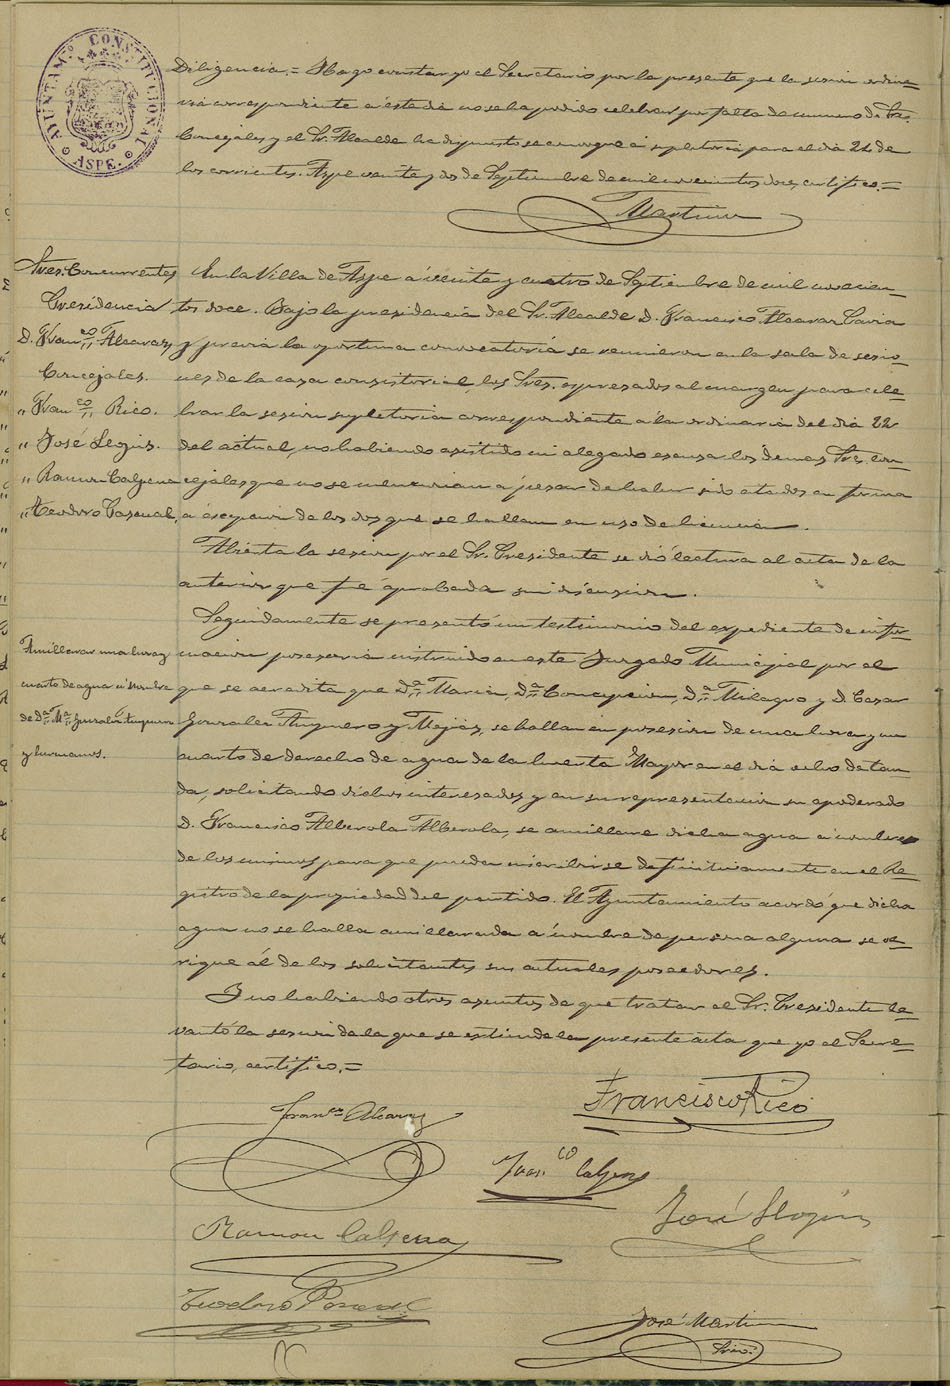 AYUNTAM.º CONSTITUCIONAL
ASPE.
Diligencia.= Hago constar yo el Secretario por la presente que la sesion ordina-
ria correspondiente a éste dia no se ha podido celebrar por falta de numero de Sres.
Concejales y el Sr. Alcalde ha dispuesto se convoque á supletoria para el dia 24 de
los corrientes. Aspe veinte y dos de Septiembre de mil novecientos doce, certifico.=
Martinez
Sres. Concurrentes
Presidencia
D. Franco Alcaraz
Concejales.
" Franco Rico.
" José
" Ramon Calpena
" Teodoro Pascual
En la Villa de Aspe á veinte y cuatro de Septiembre de mil novecien-
tos doce. Bajo la presidencia del Sr. Alcalde D. Francisco Alcaraz
y previa la oportuna convocatoria se reunieron en la sala de sesio-
nes de la casa consistorial, los Sres. expresados al margen para cele-
brar la sesion supletoria correspondiente á la ordinaria del dia 22
del actual, no habiendo asistido ni alegado escusa los demas Sres. con-
cejales que no se mencionan a pesar de haber sido citados en forma
a escepcion de los dos que se hallan en uso de licencia.
Abierta la sesion por el Sr. Presidente se dió lectura al acta de la
anterior que fué aprobada sin discusion.
Amillarar una hora y
cuarto de agua á nombre
de Dª Mª
y hermanos.
Seguidamente se presentó un testimonio del expediente de infor-
macion posesoria instruido en este Juzgado Municipal por el
que se acredita que Dª Maria, Dª Concepcion, Dª Milagro y D. Cesar
Gonzalez y Mejias, se hallan en posesion de una hora y un
cuarto de derecho de agua de la huerta Mayor en el dia ocho de tan-
da, solicitando dichos interesados y en su representacion su apoderado
D. Francisco Alberola Alberola, se amillare dicha agua á nombre
de los mismos para que pueda inscribirse definitivamente en el Re-
gistro de la propiedad del partido. El Ayuntamiento acordó que dicha
agua no se halla amillarada á nombre de persona alguna se
al de los solicitantes sus actuales poseedores.
Y no habiendo otros asuntos de que tratar el Sr. Presidente le-
vantó la sesion de la que se estiende la presente acta que yo el Secre-
tario, certifico.=
Franco Alcaraz
Francisco Rico
Franco Calpena
José
Ramon Calpena
Teodoro Pascual
José Martinez
Srio.